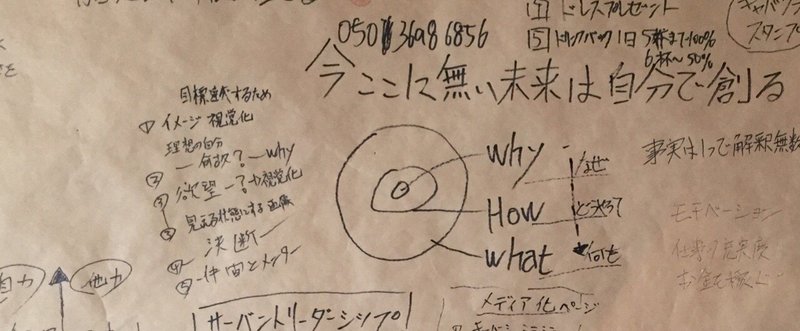 050 3698 6856
④ ドレスプレゼント
⑤ ドリンクバック 1日 5杯まで100%
6杯〜50%
スタンプ
今ここに無い未来は自分で創る
目標達成するため
① イメージ 視覚化
理想の自分
何故? ーwhy
② 欲望ー?や視覚化
③ 見える状態にする
決断ー
④
⑤ 仲間とメンター
why
なぜ
How
どうやって
what
何を
事実は1つで解釈無数
モチベーション
仕事の充実度
お金を稼ぐ
自力
他力
サーバントリーダーシップ
メディア化ページ